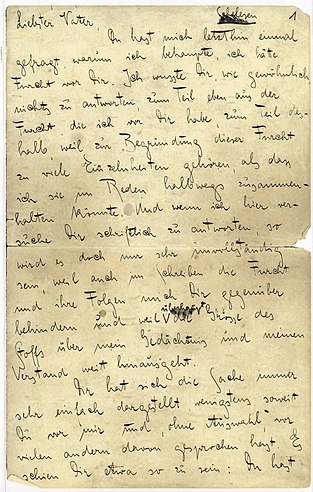 Liebster Vater
1
Du hast mich letzthin einmal
gefragt warum ich behaupte, ich hätte
Furcht vor Dir. Ich wusste Dir wie gewöhnlich
nichts zu antworten, zum Teil eben aus der
Furcht die ich vor Dir habe zum Teil des-
halb, weil zur Begründung dieser Furcht
zu viele Einzelnheiten gehören, als dass
ich sie im Reden halbwegs zusammen-
halten könnte. Und wenn ich hier ver-
suche Dir schriftlich zu antworten, so
wird es doch nur sehr unvollständig
sein, weil auch im Schreiben die Furcht
und ihre Folgen mich Dir gegenüber
behindern und weil die Grösse des
Stoffs über mein Gedächtnis und meinen
Verstand weit hinausgeht.
Dir hat sich die Sache immer
sehr einfach dargestellt wenigstens soweit
Du vor mir und, ohne Auswahl, vor
vielen andern davon gesprochen hast. Es
schien Dir etwa so zu sein: Du hast